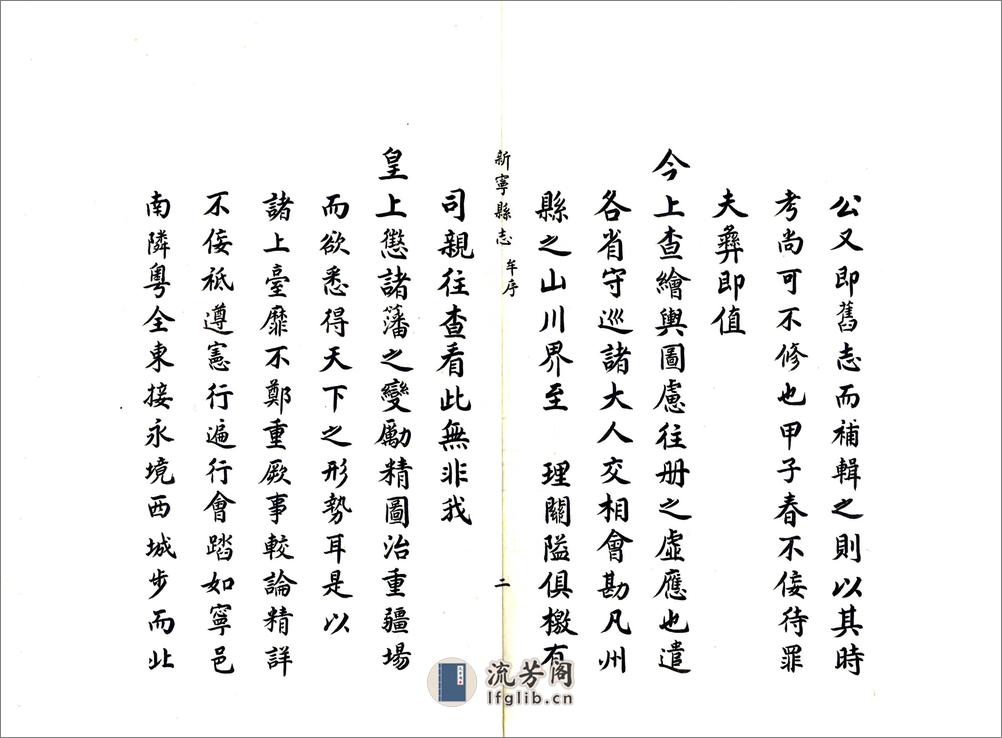 公又即舊志而補輯之則以其時
考尚可不修也甲子春不佞待罪
夫彝即值
今上查繪輿圖慮往册之虛應也遣
各省守巡諸大人交相會勘凡州
縣之山川界至 理關隘俱檄有
新寧縣志 牟序 二
司親往查看此無非我
皇上懲諸藩之變勵精圖治重疆場
而欲悉得天下之形勢耳是以
諸上臺靡不鄭重厥事較論精詳
不佞祗遵憲行遍行會踏如寧邑
南隣粵全東接永境西城步而北
流芳阁
lfglib.cn